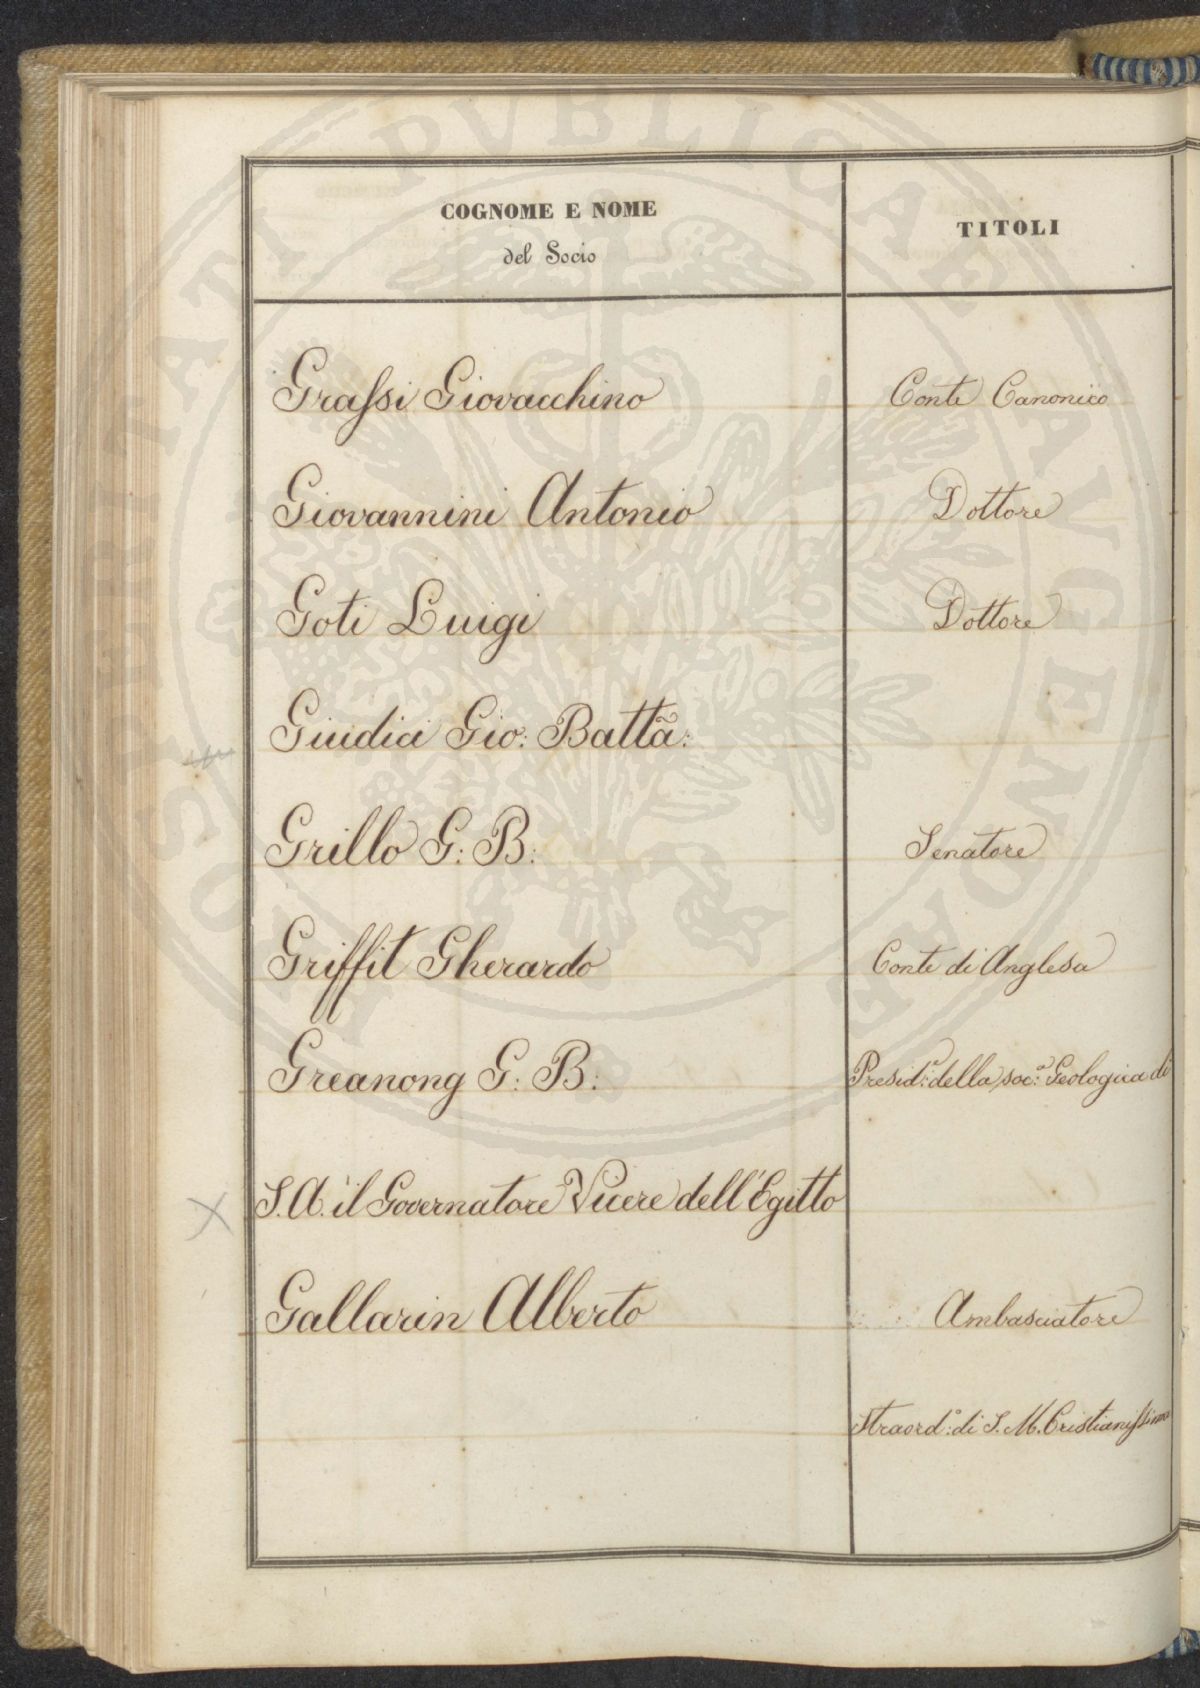 COGNOME E NOME
del Socio
TITOLI
Grassi Giovacchino Conte Canonico
Giovannini Antonio Dottore
Goti Luigi Dottore
Giudici Gio: Battã:
Grillo G: B: Senatore
Griffit Gherardo Conte di Anglesa
Greanong G: B: Presid.e: della soc.a: Geologica di
S. A. il Governatore Vicere dell'Egitto
Gallarin Alberto Ambasciatore
Straord.o: di S. M. Cristianissima